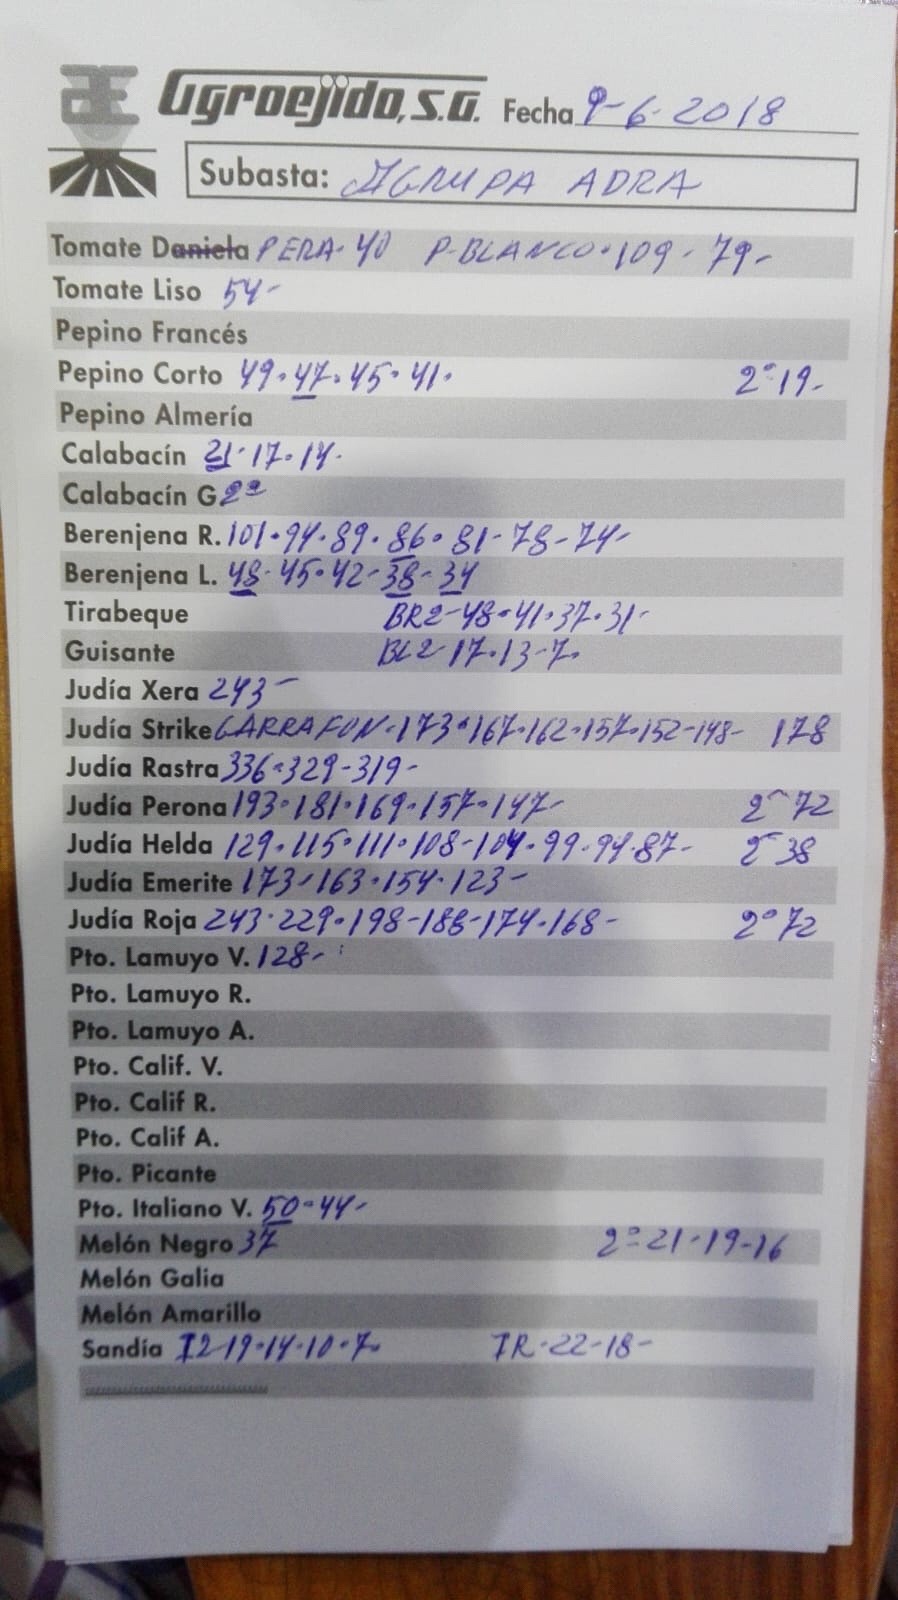 Agroejido, S.A. Fecha 9-6-2018
Subasta: AGRUPA ADRA
Tomate Daniela PERA-40 P-BLANCO-109-79-
Tomate Liso 54-
Pepino Francés
Pepino Corto 49-47-45-41- 2ª 19-
Pepino Almería
Calabacín 21-17-14-
Calabacín G 2ª
Berenjena R. 101-94-89-86-81-78-74-
Berenjena L. 48-45-42-38-34
Tirabeque BR2-48-41-37-31-
Guisante BL2-17-13-7-
Judía Xera 243-
Judía Strike GARRAFON-173-167-162-157-152-148- 178
Judía Rastra 336-329-319-
Judía Perona 193-181-169-157-147- 2ª 72
Judía Helda 129-115-111-108-104-99-94-87- 2ª 38
Judía Emerite 173-163-154-123-
Judía Roja 243-229-198-188-174-168- 2ª 72
Pto. Lamuyo V. 128-
Pto. Lamuyo R.
Pto. Lamuyo A.
Pto. Calif. V.
Pto. Calif R.
Pto. Calif A.
Pto. Picante
Pto. Italiano V. 50-44-
Melón Negro 37 2ª 21-19-16
Melón Galia
Melón Amarillo
Sandía 12-19-14-10-7- IR-22-18-